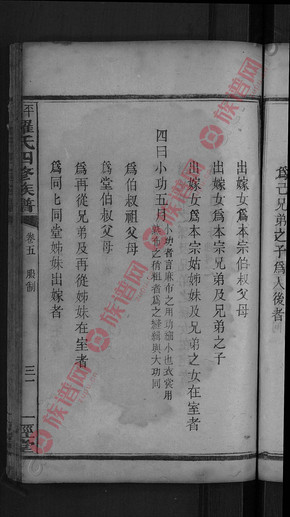 爲己兄弟之子爲人後者
出嫁女爲本宗伯叔父母
出嫁女爲本宗兄弟及兄弟之子
出嫁女爲本宗姑姊妹及兄弟之女在室者
四曰小功五月
小功者言麻布之用功細小也衰用
爲伯叔祖父母
爲堂伯叔父母
爲再從兄弟及再從姊妹在室者
爲同堂姊妹出嫁者
羅氏四修族普
卷五 服制
三一
一經堂
族谱网